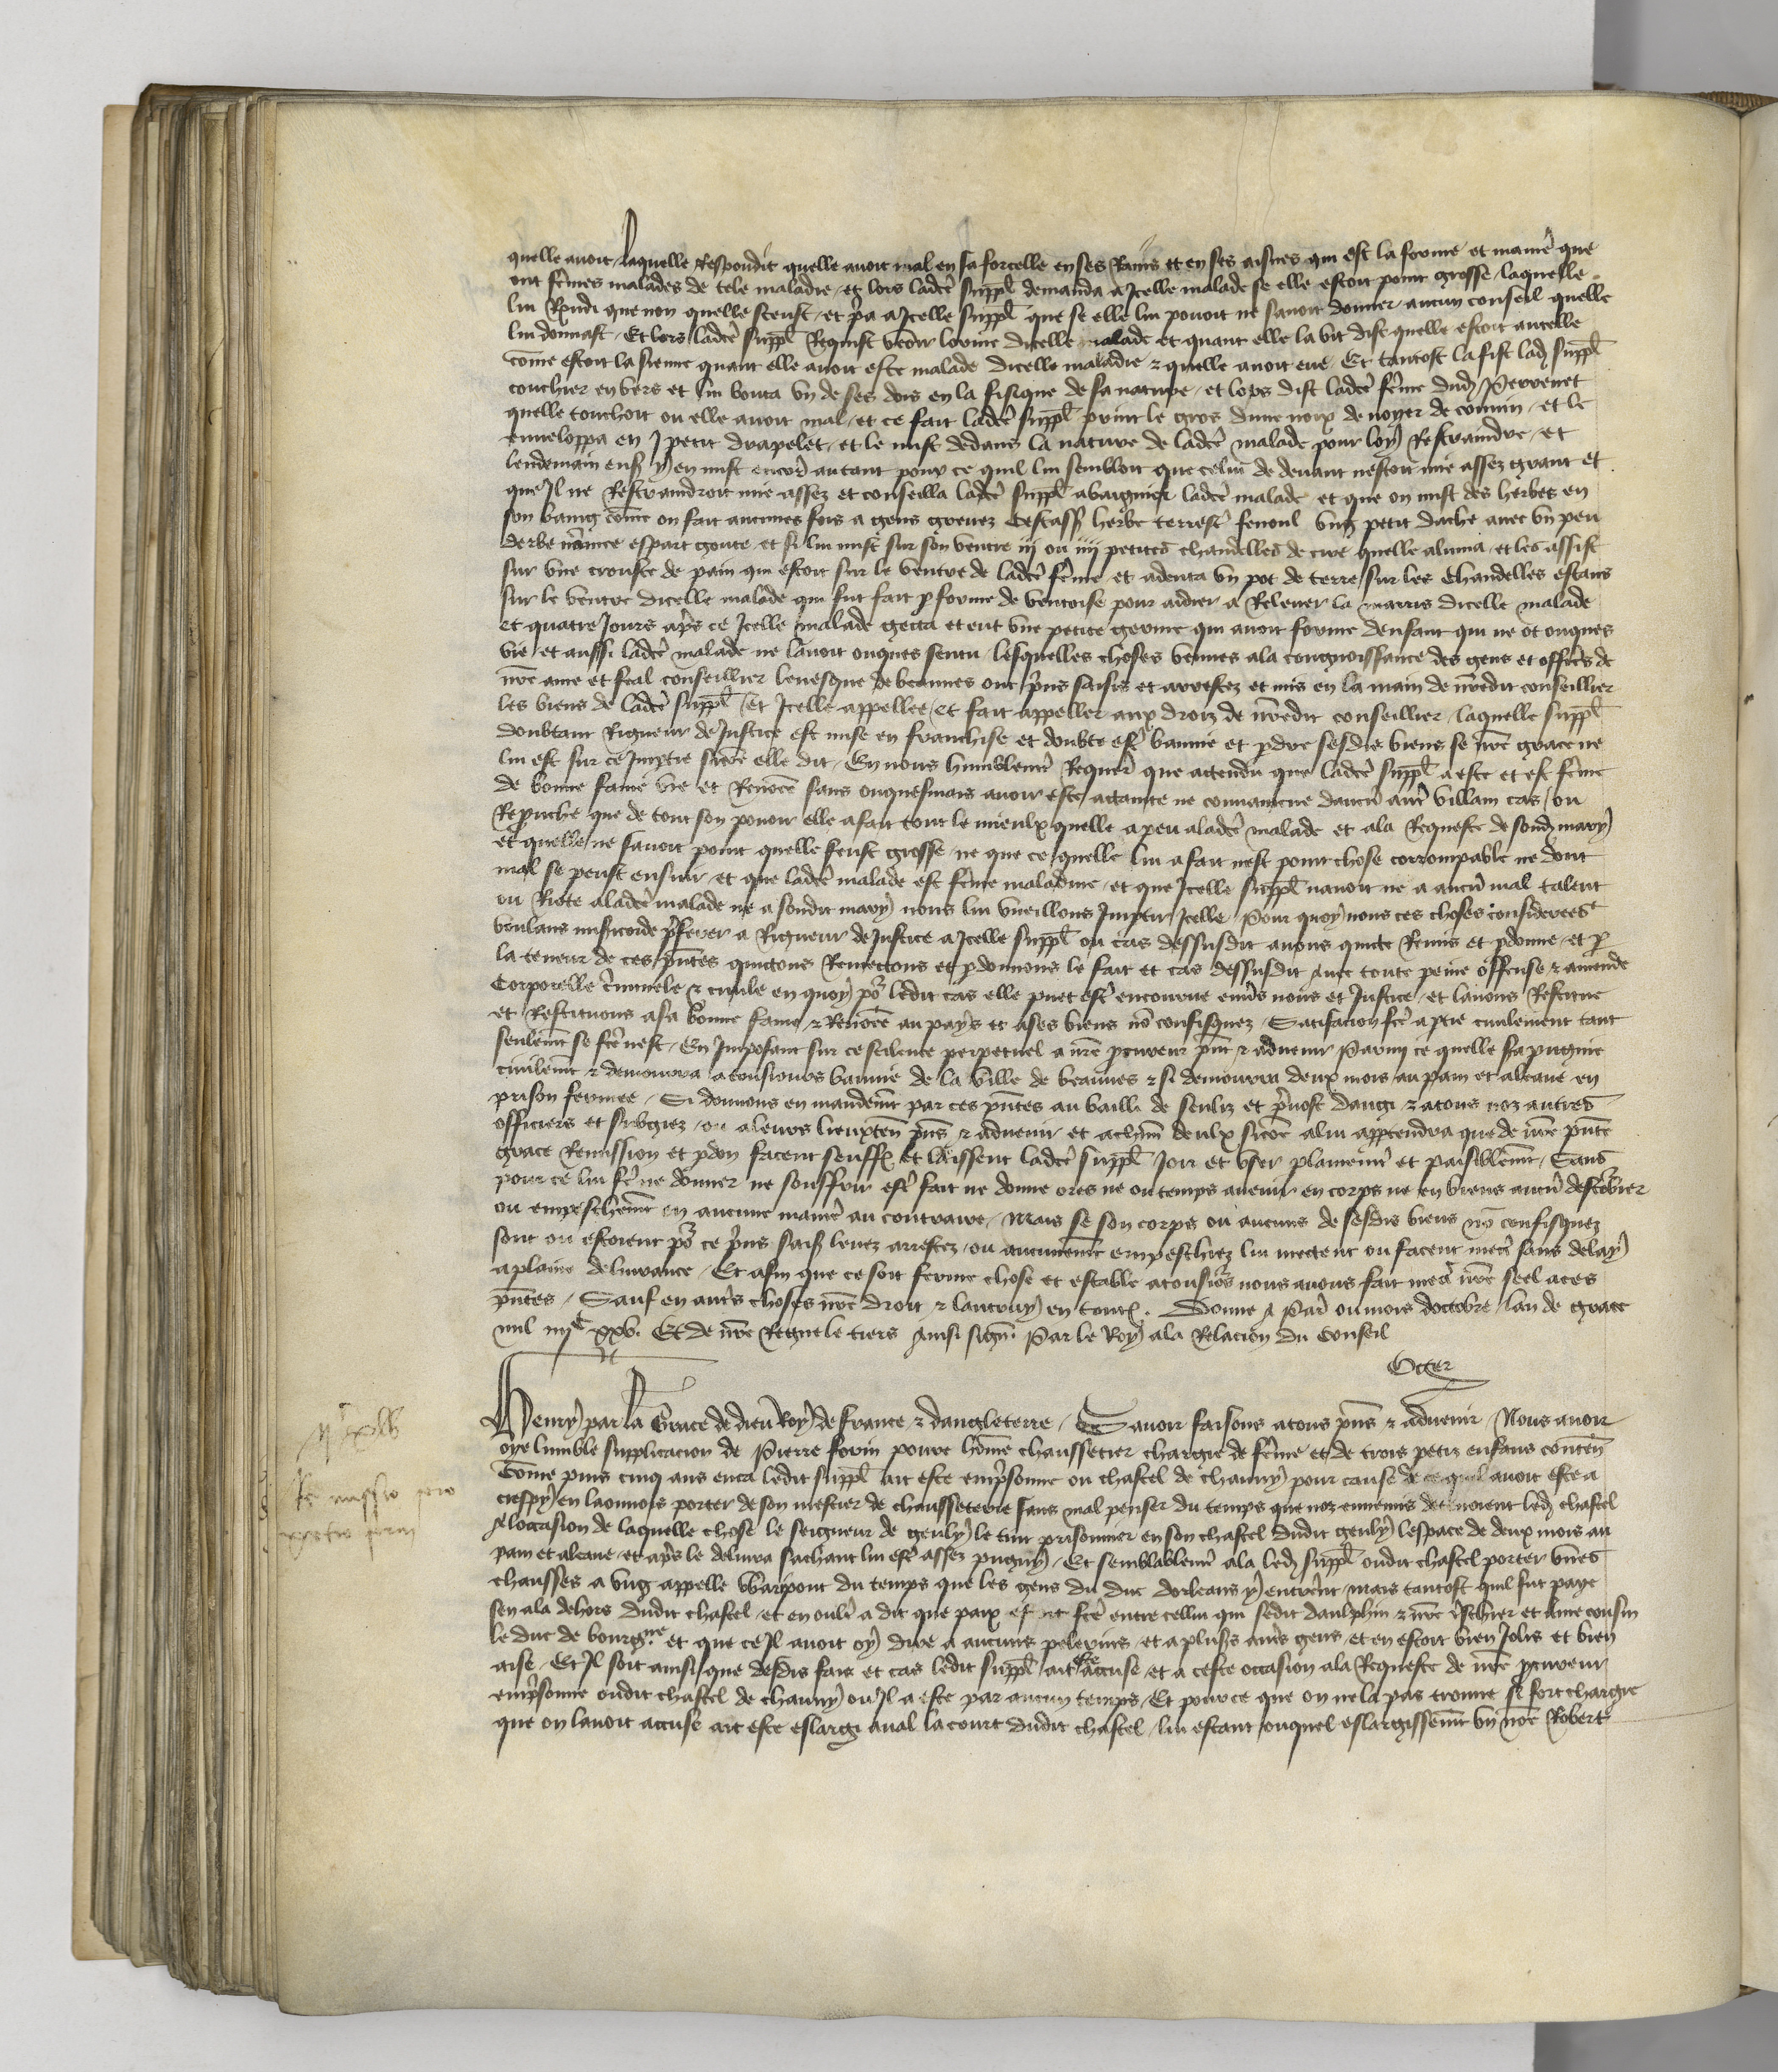 quelle avoit laquelle Respondit quelle avoit mal en sa forcelle en ses Rains et en ses aisnes qui est la forme et manie que
ont femes malades de tele maladie et lors ladce suppl demanda a Icelle malade se elle estoit point grosse laquelle
lui Rpndi que non quelle sceust et pa a Icelle suppl que se elle lui povoit ne savoit donner aucun conseil quelle
lui donnast Et lors ladce suppl Requist veoir lorine dicelle malade et quant elle la vit dist quelle estoit autelle
come estoit la sienne quant elle avoit este malade dicelle maladie & quelle avoit eue Et tantost la fist lad suppl
couchier envers et lui bouta un de ses dois en la fisique de sa nature et lors dist ladce feme dud Perrenet
quelle touchoit ou elle avoit mal et ce fait ladce suppl print le gros dune noix de noyer de commin et le
enveloppa en I petit drapelet et le mist dedans la nature de ladce malade pour loy Restraindre et
lendemain ens y en mist encor autant pour ce quil lui sembloit que celui de devant nestoit mie assez grant et
que Il ne Restraindroit mie assez et conseilla ladce suppl a baignier ladce malade et que on mist des herbes en
son baing come on fait aucunes fois a gens grevez Cestass herbe terrest fenoul ung petit dache avec un peu
derbe espart goute et si lui mist sur son ventre iij ou iiij petites chandelles de cire quelle aluma et les assist
sur une crouste de pain qui estoit sur le ventre de ladce feme et adenta un pot de terre sur les Chandelles estans
sur le ventre dicelle malade qui fut fait p forme de ventoise pour aidier a Relever la marris dicelle malade
et quatre Jours aps ce Icelle malade getta et eut une petite germe qui avoit forme denfant qui ne ot onques
vie et aussi ladce malade ne lavoit onques sentu lesquelles choses venues ala congnoissance des gens et offics de
nre ame et feal conseillier levesque de beauves ont pns saisis et arrestez et mis en la main de nredit conseillier
les biens de ladce suppl et Icelle appellee et fait appeller aux droiz de nredit conseillier laquelle suppl
doubtant Rigueur de Justice est mise en franchise et doubte est bannie et pdre sesdis biens se nre grace ne
lui est sur ce Imptie sicoe elle dit En nous humblemt Requert que attendu que ladce suppl a este et est feme
de bonne fame vie et Renoee sans onquesmais avoir este attainte ne convaincue daucu aut villain cas ou
Reprouche que de tout son povoir elle a fait tout le mieulx quelle a peu a ladce malade et ala Requeste de sond mary
et quelle ne savoit point quelle feust grosse ne que ce quelle lui a fait nest point chose corrompable ne dont
mal se peust ensuir et que ladce malade est feme maladive et que Icelle suppl navoit ne a aucu mal talent
ou Riote a ladce malade ne a sondit mary nous lui vueillons Imptir Icelle Pour quoy nous ces choses considerees
voulans misicorde pferer a Rigueur de Justice a Icelle suppl ou cas dessusdit avons quicte Remis et pdonne et p
la teneur de ces pntes quictons Remectons et pdonnons le fait et cas dessusdit avec toute peine offense & amende
Corporelle cminele & civile en quoy po ledit cas elle puet est encourue envs nous et Justice et lavons Restitue
et Restituons a sa bonne fame & Renoee au pays et a ses biens no confisquez Satisfacion fce a ptie civilement tant
seulemt se fce nest En Imposant sur ce scilence perpetuel a nre pcureur pnt & advenir Parmi ce quelle sa pugnie
civilemt & demourra a tousiours bannie de la ville de beauves & si demourra deux mois au pain et aleaue en
prison fermee Si donnons en mandemt par ces pntes au bailli de senliz et pvost dangi & a tous noz autres
officiers et subgiez ou a leurs lieuxten pns & advenir et a chm deulx sicoe a lui apptendra que de nre pnte
grace Remission et pdon facent seuff et laissent ladce suppl Joir et user plainemt et paisiblemt Sans
pour ce lui fe ne donner ne souffrir est fait ne donne ores ne ou temps avenir en corps ne en biens aucu destobier
ou empeschemt en aucune manie au contraire Mais se son corps ou aucuns de sesdis biens no confisquez
sont ou estoient po ce pns saiss levez arrestez ou aucunemt empeschiez lui mectent ou facent mect sans delay
a plaine delivrance Et afin que ce soit ferme chose et estable a tousiors nous avons fait mect nre seel a ces
pntes Sauf en auts choses nre droit & lautruy en tout Donne A Par ou mois doctobre lan de grace
mil iiijc xxv Et de nre Regne le tiers Ainsi sign Par le Roy ala Relacion du Conseil
Oger
Henry par la Grace de dieu Roy de france & dangleterre Savoir faisons a tous pns & advenir Nous avoir
oye lumble supplicacion de Pierre forin povre home chaussetier chargie de feme et de trois petiz enfans conten
Come puis cinq ans enca ledit suppl ait este emprisonne ou chastel de chauny pour cause de ce quil avoit este a
crespy en laonnois porter de son mestier de chausseterie sans mal penser du temps que noz ennemis detenoient led chastel
A locasion de laquelle chose le seigneur de genly le tint prisonnier en son chastel dudit genly lespace de deux mois au
pain et aleaue et aps le delivra sachant lui est assez pugny Et semblablemt ala led suppl oudit chastel porter unes
chausses a ung appelle Waripont du temps que les gens du duc dorleans y entrent mais tantost quil fut paye
sen ala dehors dudit chastel et en oult a dit que paix estoit fce entre cellui qui se dit daulphin & nre tschier et Ame cousin
le duc de bourgne et que ce Il avoit oy dire a aucuns pelerins et a pluss auts gens et en estoit bien Jolis et bien
aise Et Il soit ainsi que desdis fais et cas ledit suppl ait este accuse et a ceste occasion ala Requeste de nre pcureur
emprisonne oudit chastel de chauny ou Il a este par aucun temps Et pource que on ne la pas trouve si fort chargie
que on lavoit accuse ait este eslargi aval la court dudit chastel lui estant ouquel eslargissemt un noe Robert